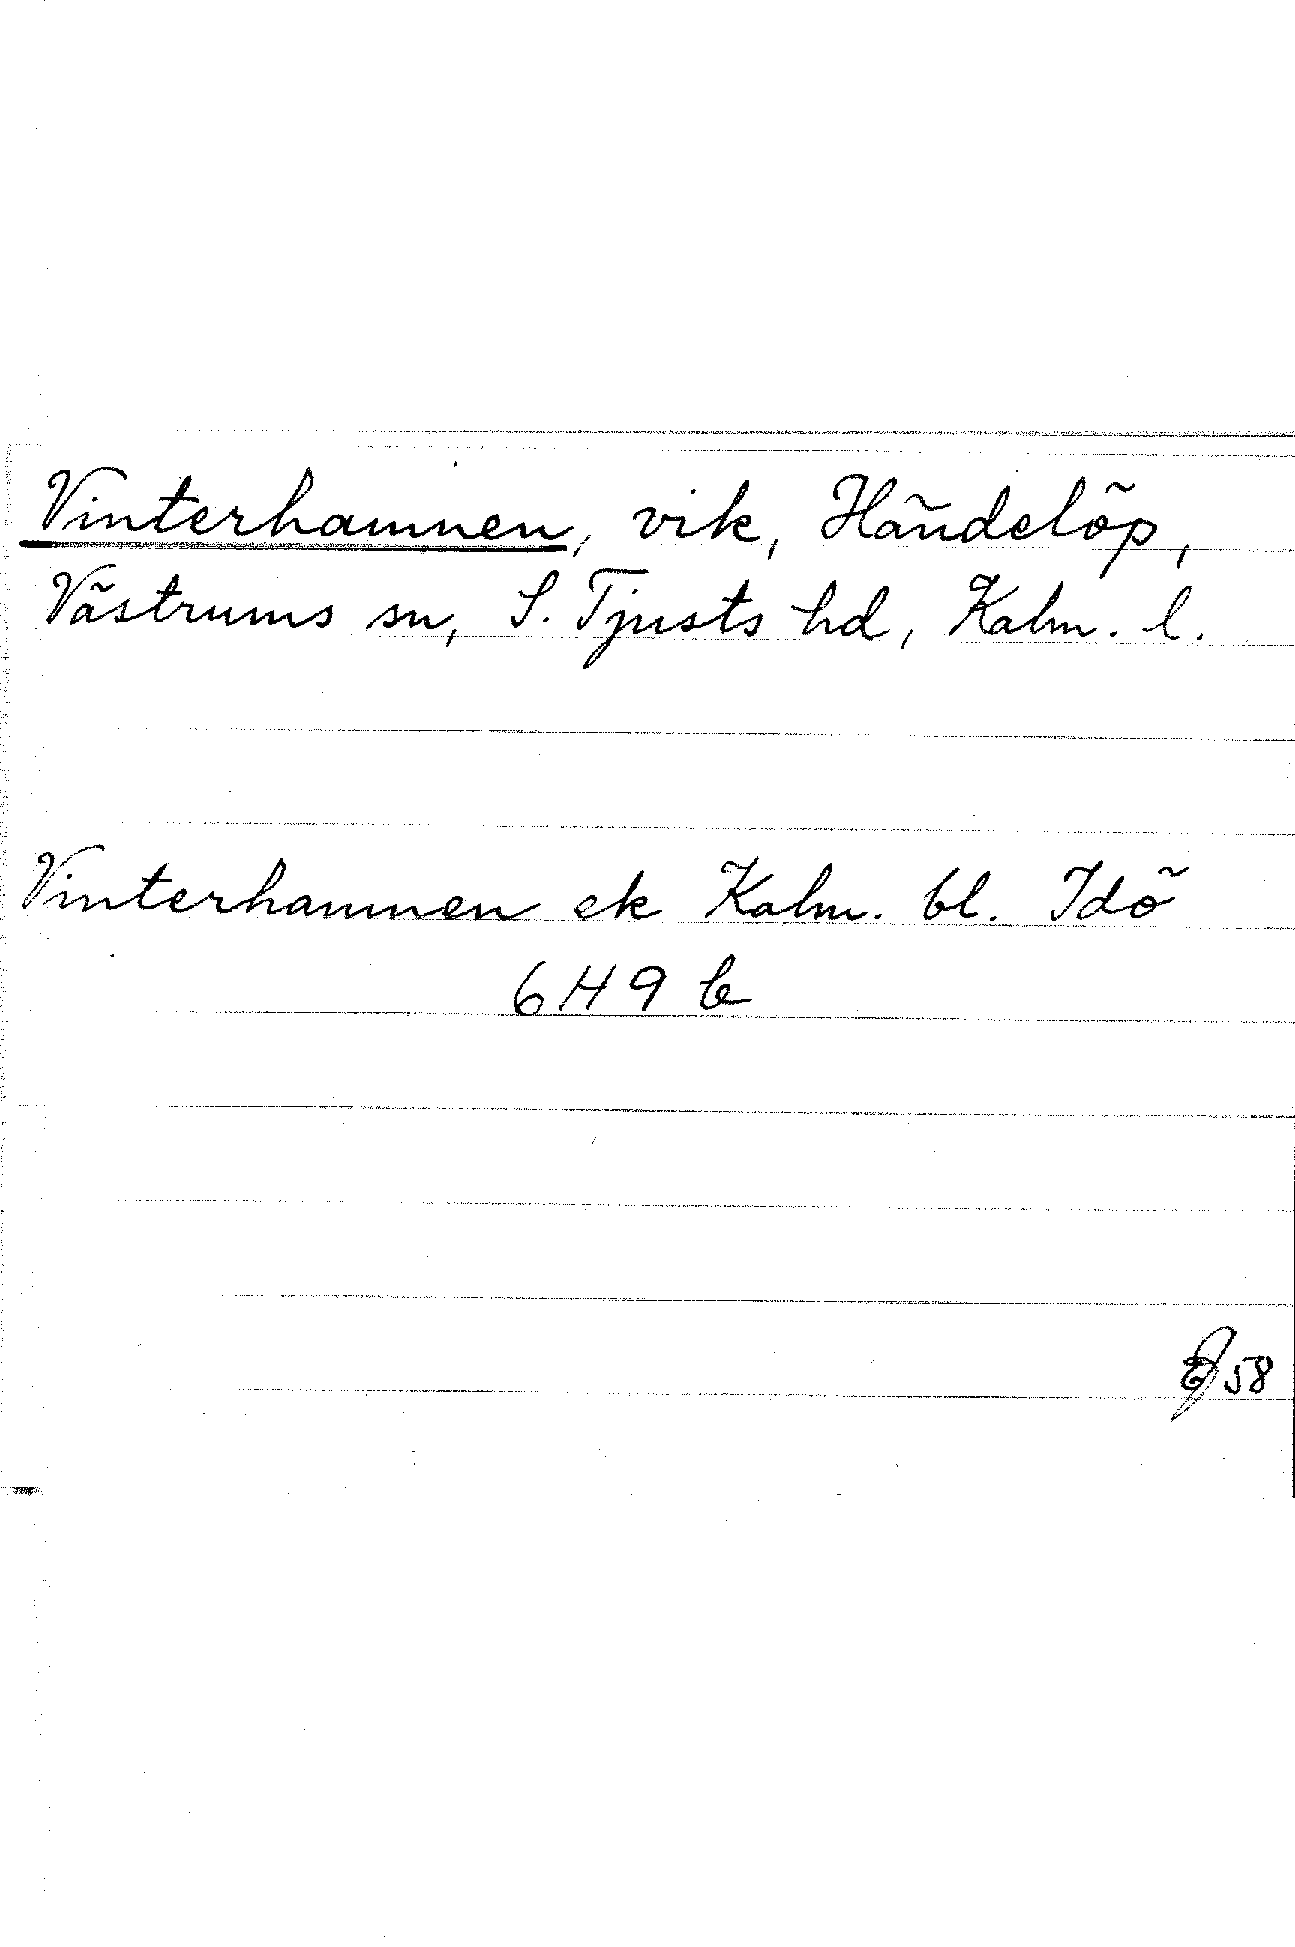 Vinterhamnen, vik, Händelöp,
Västrums sn, S. Tjusts hd, Kalm. l.
Vinterhamnen ek Kalm. bl. Idö
6H9b
58